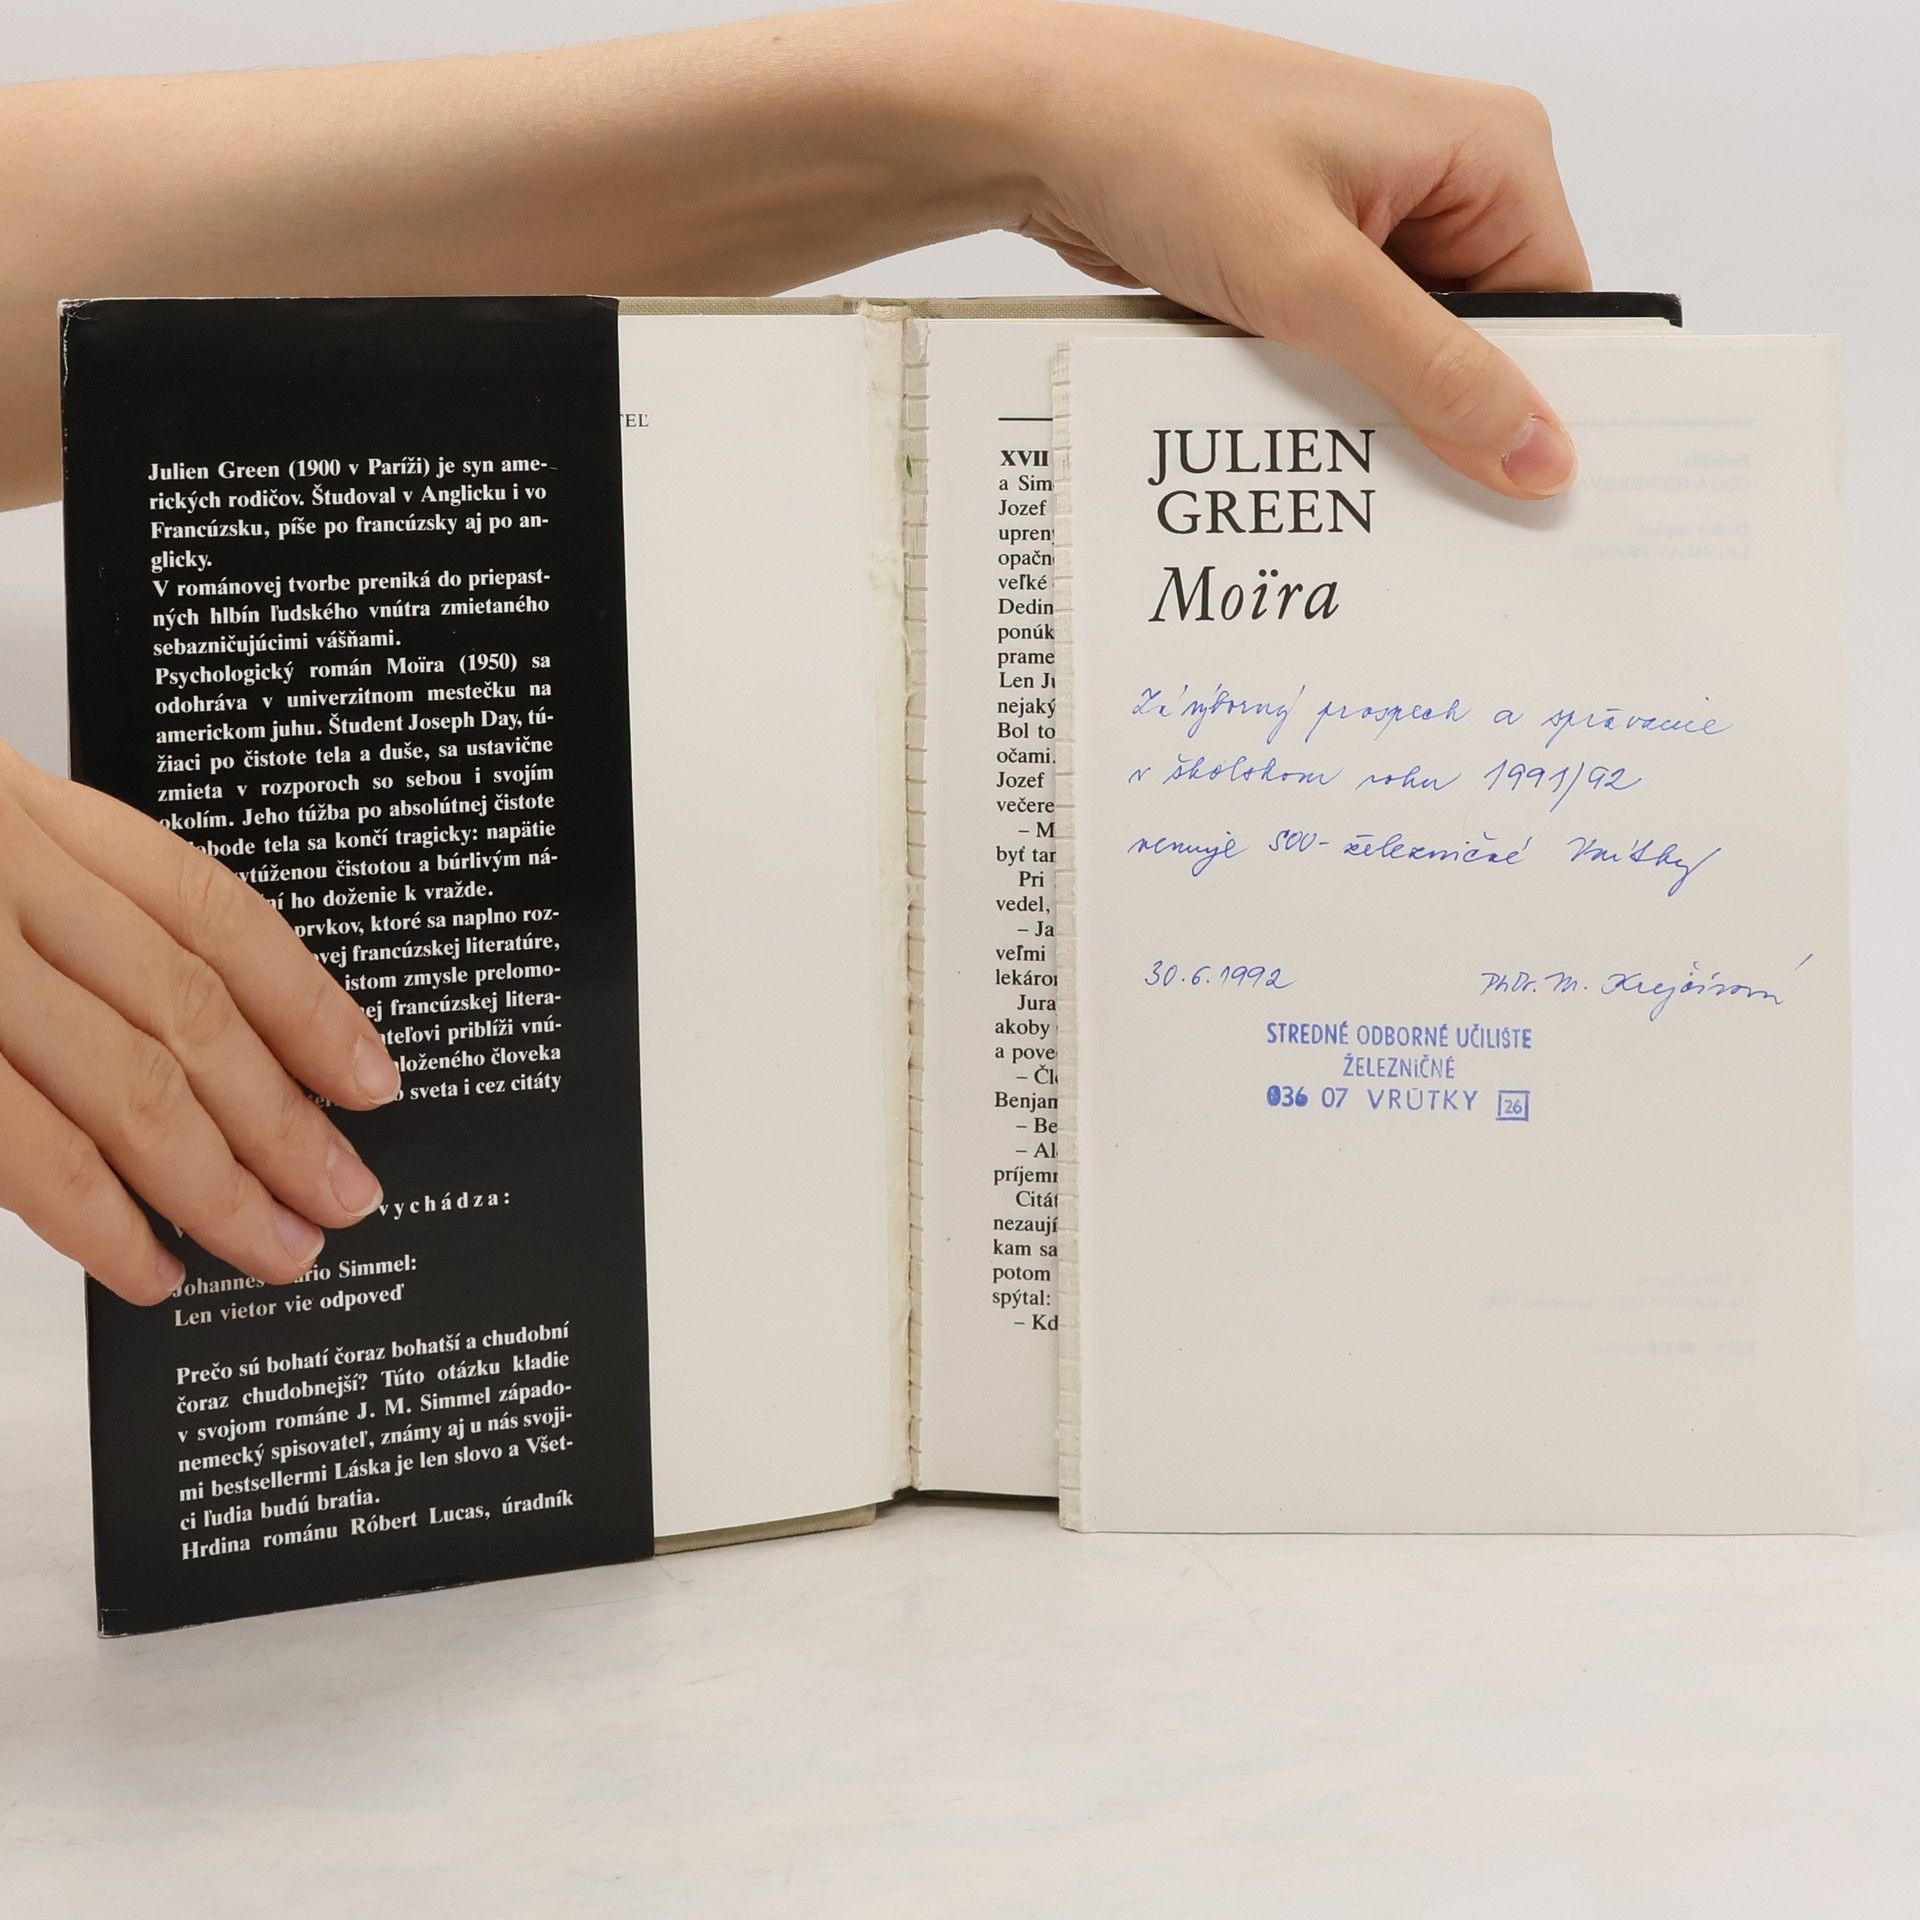 Julien Green (1900 v Paríži) je syn ame-
rických rodičov. Študoval v Anglicku i vo
Francúzsku, píše po francúzsky aj po an-
glicky.
V románovej tvorbe preniká do priepast-
ných hlbín ľudského vnútra zmietaného
sebazničujúcimi vášňami.
Psychologický román Moïra (1950) sa
odohráva v univerzitnom mestečku na
americkom juhu. Študent Joseph Day, tú-
žiaci po čistote tela a duše, sa ustavične
zmieta v rozporoch so sebou i svojím
okolím. Jeho túžba po absolútnej čistote
tela sa končí tragicky: napätie
vytúženou čistotou a búrlivým ná-
ho doženie k vražde.
prvkov, ktoré sa naplno roz-
francúzskej literatúre,
istom zmysle prelomo-
francúzskej litera-
priblíži vnú-
človeka
sveta i cez citáty
vychádza:
Johannes Simmel:
Len vietor vie odpoveď
Prečo sú bohatí čoraz bohatší a chudobní
čoraz chudobnejší? Túto otázku kladie
v svojom románe J. M. Simmel západo-
nemecký spisovateľ, známy aj u nás svoji-
mi bestsellermi Láska je len slovo a Všet-
ci ľudia budú bratia.
Hrdina románu Róbert Lucas, úradník
TEĽ
XVII
a Sim
Jozef
upren
opačn
veľké
Dedin
ponúk
prame
Len Ju
nejaký
Bol to
očami.
Jozef
večere
– M
byť tar
Pri
vedel,
– Ja
veľmi
lekáro
Jura
akoby
a pove
– Čl
Benjan
– Be
– Al
príjem
Citát
nezaují
kam sa
potom
spýtal:
– Kd
JULIEN
GREEN
Moïra
Za výborný prospech a správanie
v školskom roku 1991/92
venuje SOU-železničné Vrútky
30.6.1992 PhDr. M. Krejčírová
STREDNÉ ODBORNÉ UČILIŠTE
ŽELEZNIČNÉ
036 07 VRÚTKY 26